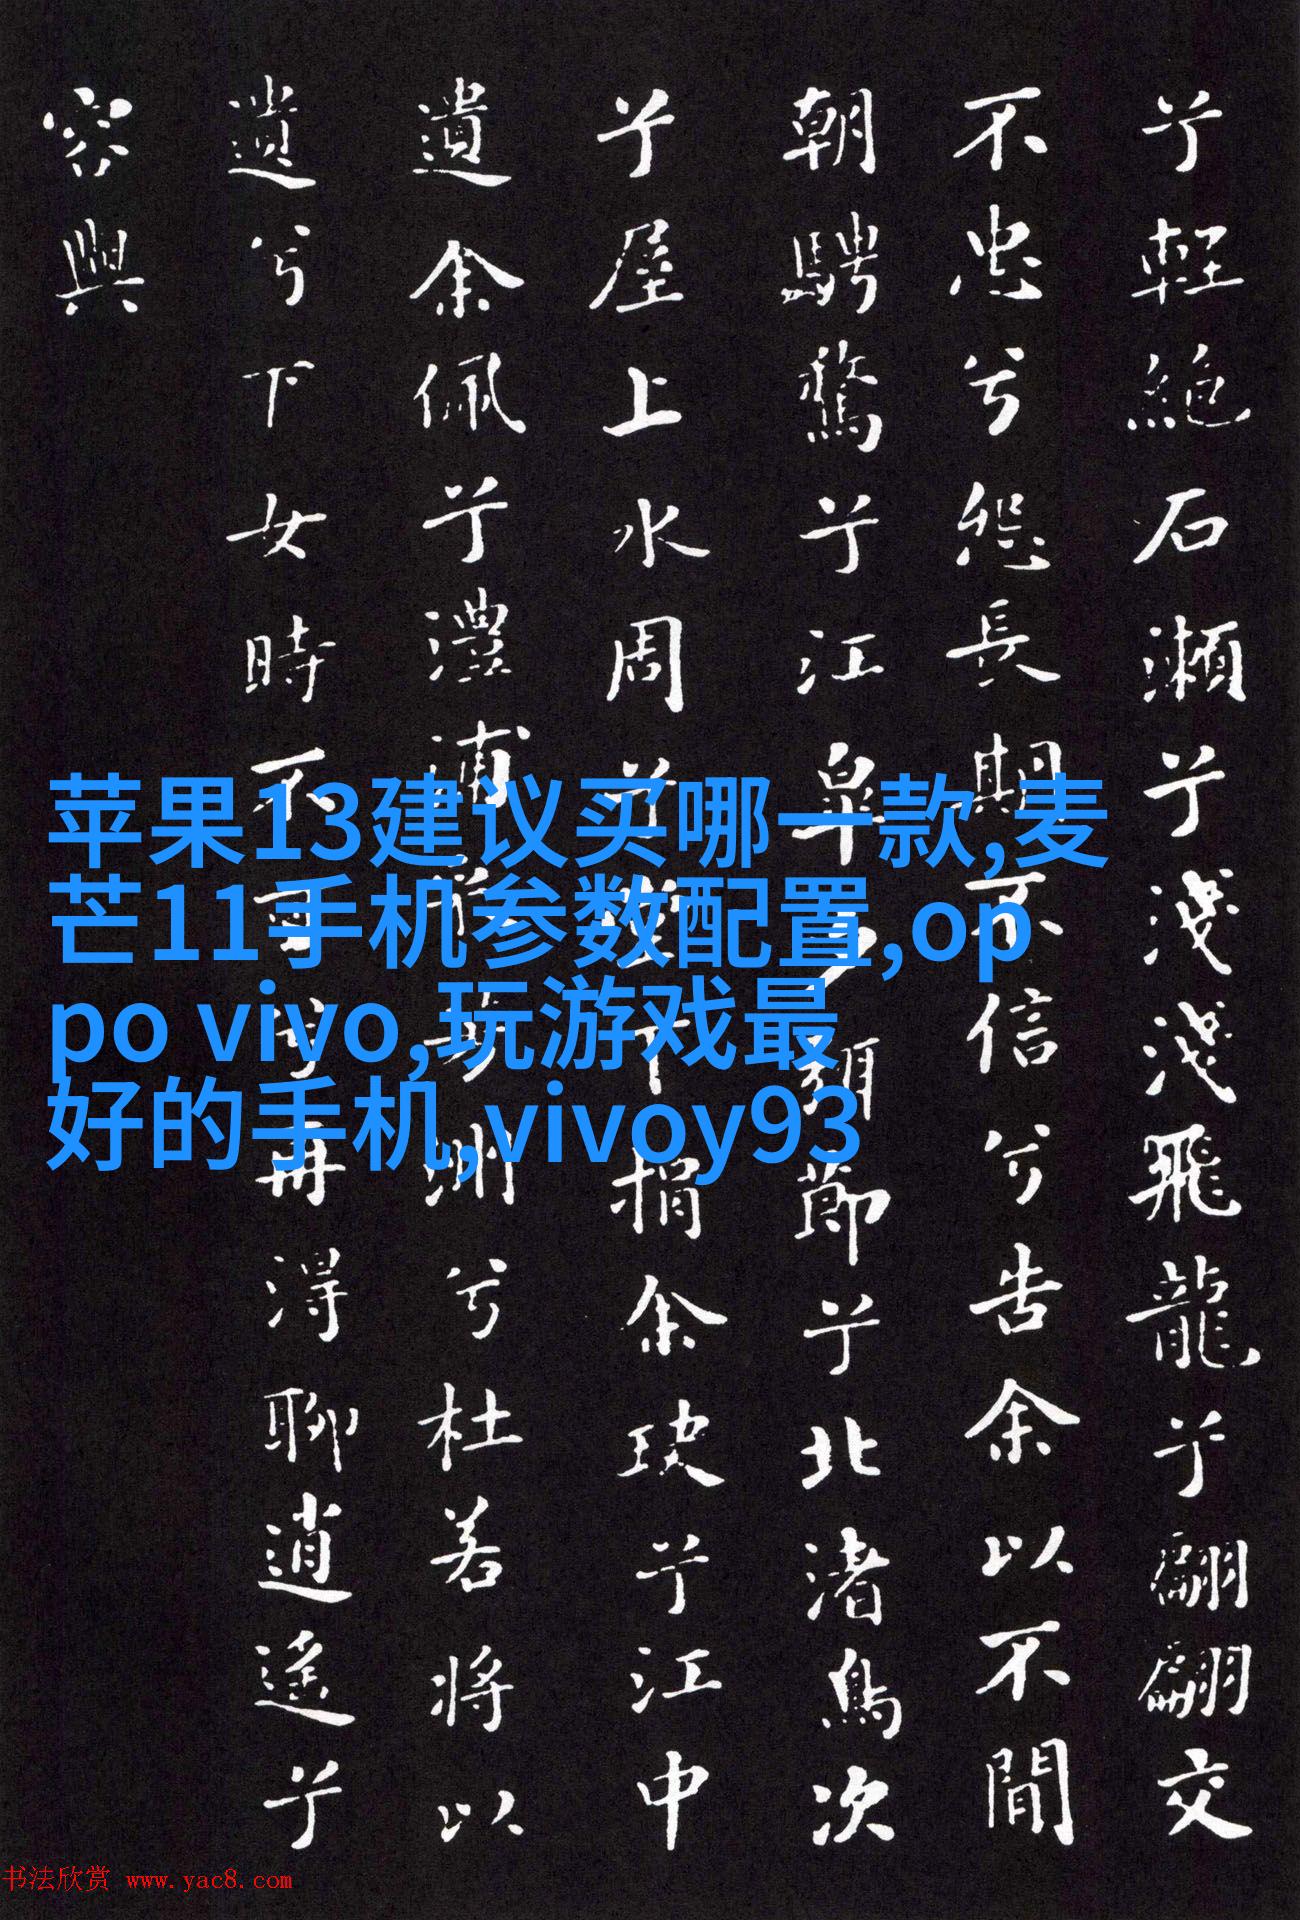 兮輕絕石瀬兮淺淺飛龍兮翩翩交
不忠兮怨長期不信兮告余以不閒
朝騁騖兮江皋夕節兮北渚鳥次
兮屋上水周兮堂下捐余玦兮江中
遺余佩兮澧浦芳洲兮杜若將以
遺兮下女時不可兮再得聊逍遙兮
容與
苹果13建议买哪一款,麦
芒11手机参数配置,op
po vivo,玩游戏最
好的手机,vivoy93
书法欣赏 www.yac8.com